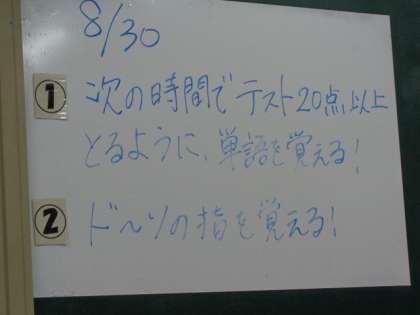 8/30
① 次の時間でテスト20点以上
とるように、単語を覚える!
② ドイツの指を覚える!